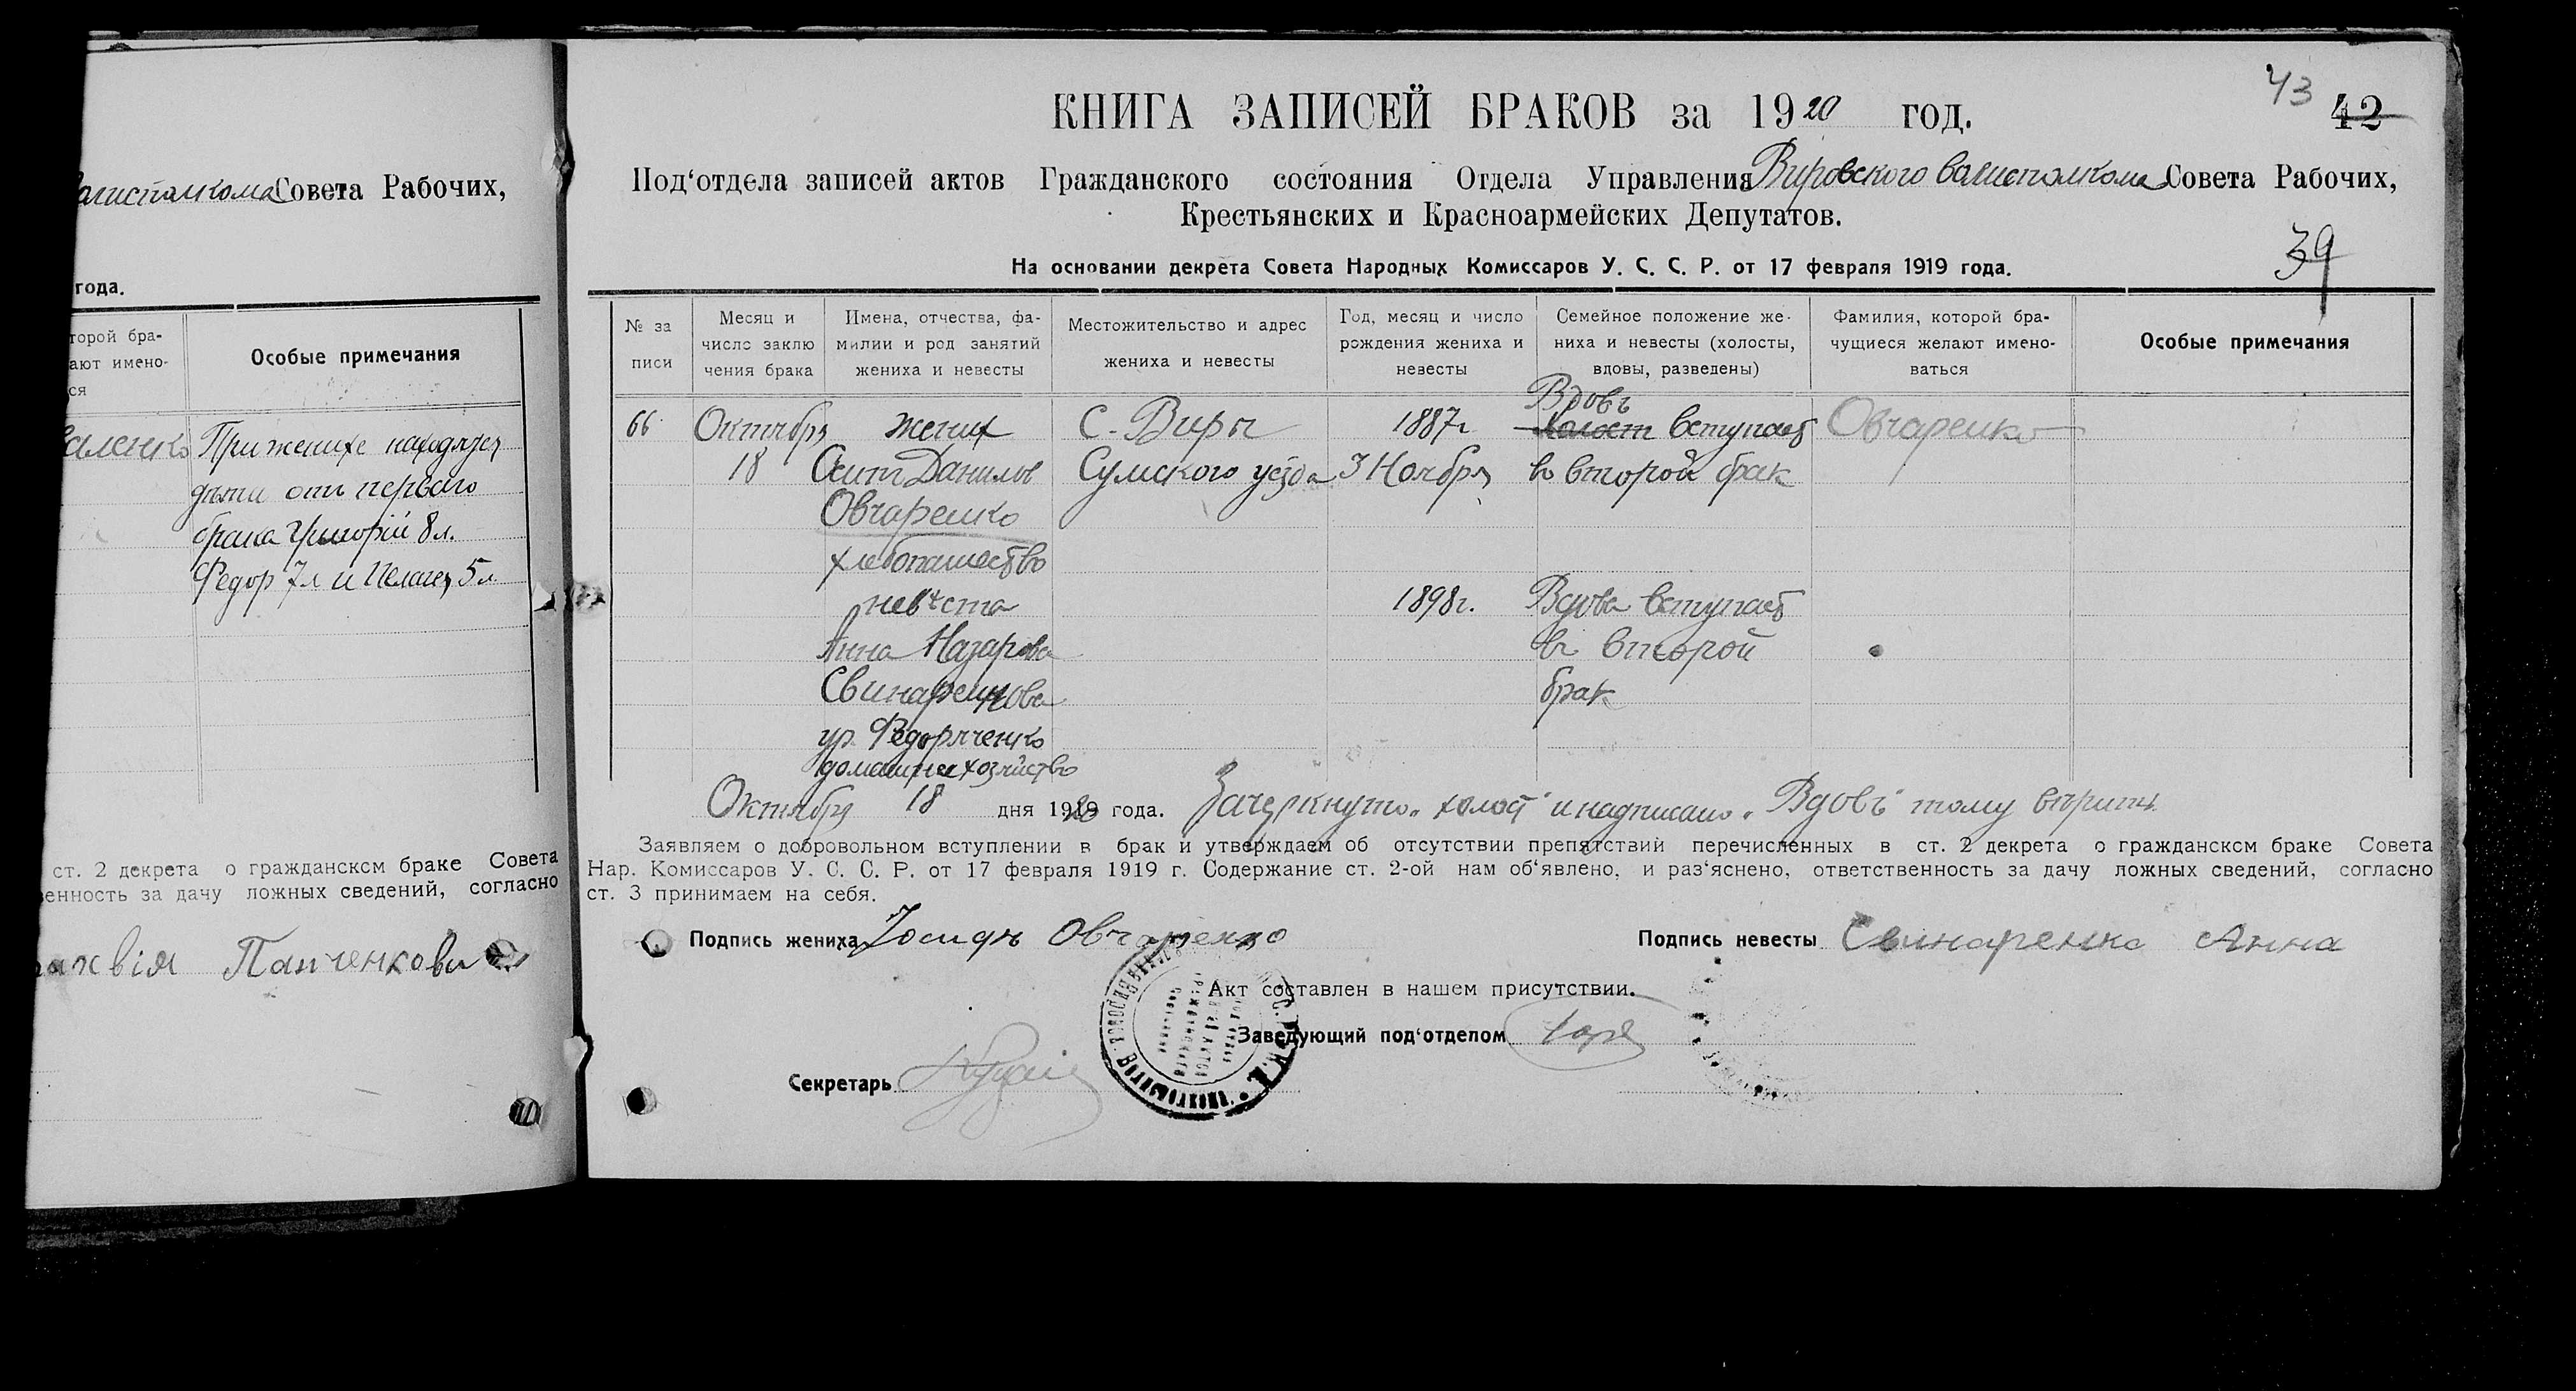 Совета Рабочих,
года.
торой бра-
ают имено-
ся
Особые примечания
При женихе находятся
дети отъ перваго
брака Григорій 8 л.
Федор 7 л и Пелагея 5 л.
ст. 2 декрета о гражданском браке Совета
енность за дачу ложных сведений, согласно
Панченкова
43
42
КНИГА ЗАПИСЕЙ БРАКОВ за 1920 год.
Под‘отдела записей актов Гражданского состояния Отдела Управления Вировского Волисполкома Совета Рабочих,
Крестьянских и Красноармейских Депутатов.
39
На основании декрета Совета Народных Комиссаров У. С. С. Р. от 17 февраля 1919 года.
№ за
писи
Месяц и
число заклю
чения брака
Имена, отчества, фа-
милии и род занятий
жениха и невесты
Местожительство и адрес
жениха и невесты
Год, месяц и число
рождения жениха и
невесты
Семейное положение же-
ниха и невесты (холосты,
вдовы, разведены)
Фамилия, которой бра-
чущиеся желают имено-
ваться
Особые примечания
66
Октября
18
жених
Данилов
Овчаренко
хлебопашество
невѣста
Анна Назарова
Свинаренкова
ур. Федорченко
домашнее хозяйство
С. Виры
Сумского уѣзда
1887 г
3 Ноября
1898 г.
Вдовъ
Холост вступает
во второй брак
Вдова вступает
въ второй
брак
Овчаренко
Октября 18 дня 1920 года. Зачеркнуто „холост“ и надписано „Вдовъ“ тому вѣрить
Заявляем о добровольном вступлении в брак и утверждаем об отсутствии препятствий перечисленных в ст. 2 декрета о гражданском браке Совета
Нар. Комиссаров У. С. С. Р. от 17 февраля 1919 г. Содержание ст. 2-ой нам об‘явлено, и раз‘яснено, ответственность за дачу ложных сведений, согласно
ст. 3 принимаем на себя.
Подпись жениха Іосифъ Овчаренко
Подпись невесты Свинаренко Анна
Акт составлен в нашем присутствии.
Заведующий под‘отделом
Секретарь